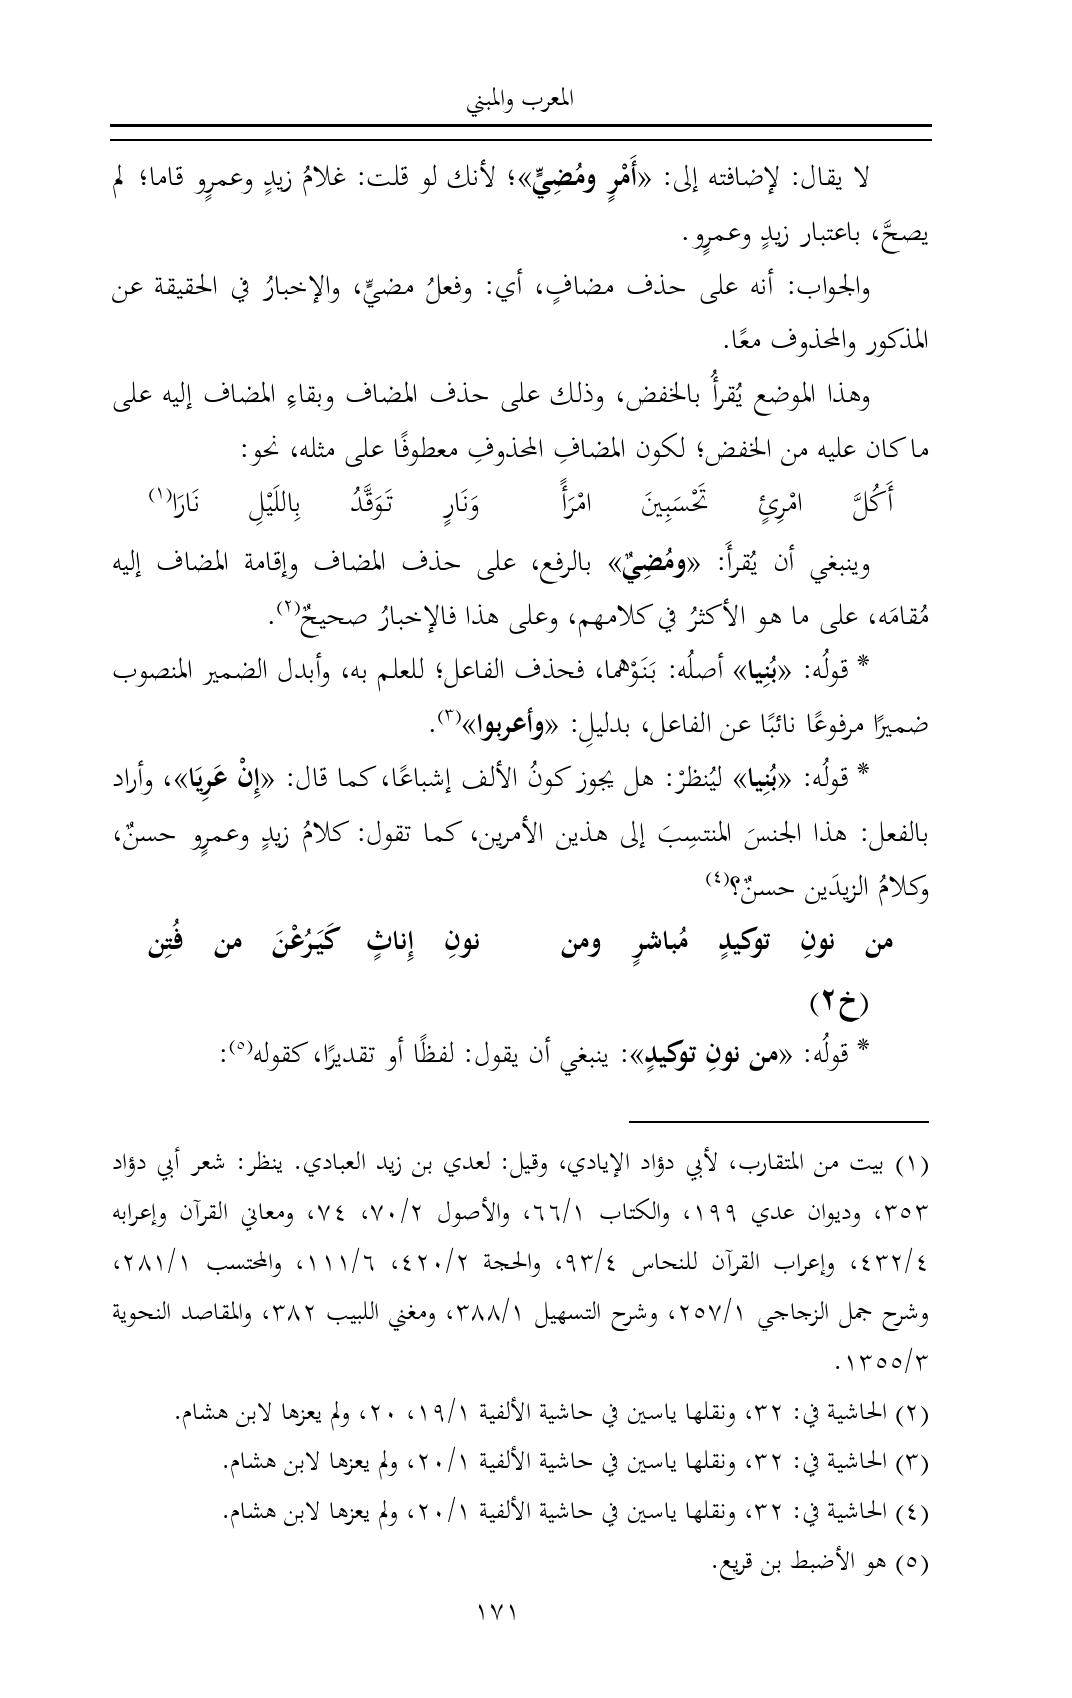 المعرب والمبني
لا يقال: لإضافته إلى: «أَمْرٍ ومُضِيٍّ»؛ لأنك لو قلت: غلامُ زيدٍ وعمرٍو قاما؛ لم
يصحَّ، باعتبار زيدٍ وعمرٍو.
والجواب: أنه على حذف مضافٍ، أي: وفعلُ مضيٍّ، والإخبارُ في الحقيقة عن
المذكور والمحذوف معًا.
وهذا الموضع يُقرأُ بالخفض، وذلك على حذف المضاف وبقاءِ المضاف إليه على
ما كان عليه من الخفض؛ لكون المضافِ المحذوفِ معطوفًا على مثله، نحو:
أَكُلَّ امْرِئٍ تَحْسَبِينَ امْرَأً وَنَارٍ تَوَقَّدُ بِاللَيْلِ نَارَا(١)
وينبغي أن يُقرأَ: «ومُضِيٌ» بالرفع، على حذف المضاف وإقامة المضاف إليه
مُقامَه، على ما هو الأكثرُ في كلامهم، وعلى هذا فالإخبارُ صحيحٌ(٢).
* قولُه: «بُنِيا» أصلُه: بَنَوْهما، فحذف الفاعل؛ للعلم به، وأبدل الضمير المنصوب
ضميرًا مرفوعًا نائبًا عن الفاعل، بدليلِ: «وأعربوا»(٣).
* قولُه: «بُنِيا» ليُنظرْ: هل يجوز كونُ الألف إشباعًا، كما قال: «إِنْ عَرِيَا»، وأراد
بالفعل: هذا الجنسَ المنتسِبَ إلى هذين الأمرين، كما تقول: كلامُ زيدٍ وعمرٍو حسنٌ،
وكلامُ الزيدَين حسنٌ؟(٤)
من نونِ توكيدٍ مُباشرٍ ومن نونِ إِناثٍ كَيَرُعْنَ من فُتِن
(خ٢)
* قولُه: «من نونِ توكيدٍ»: ينبغي أن يقول: لفظًا أو تقديرًا، كقوله(٥):
(١) بيت من المتقارب، لأبي دؤاد الإيادي، وقيل: لعدي بن زيد العبادي. ينظر: شعر أبي دؤاد
٣٥٣، وديوان عدي ١٩٩، والكتاب ٦٦/١، والأصول ٧٠/٢، ٧٤، ومعاني القرآن وإعرابه
٤٣٢/٤، وإعراب القرآن للنحاس ٩٣/٤، والحجة ٤٢٠/٢، ١١١/٦، والمحتسب ٢٨١/١،
وشرح جمل الزجاجي ٢٥٧/١، وشرح التسهيل ٣٨٨/١، ومغني اللبيب ٣٨٢، والمقاصد النحوية
١٣٥٥/٣.
(٢) الحاشية في: ٣٢، ونقلها ياسين في حاشية الألفية ١٩/١، ٢٠، ولم يعزها لابن هشام.
(٣) الحاشية في: ٣٢، ونقلها ياسين في حاشية الألفية ٢٠/١، ولم يعزها لابن هشام.
(٤) الحاشية في: ٣٢، ونقلها ياسين في حاشية الألفية ٢٠/١، ولم يعزها لابن هشام.
(٥) هو الأضبط بن قريع.
١٧١